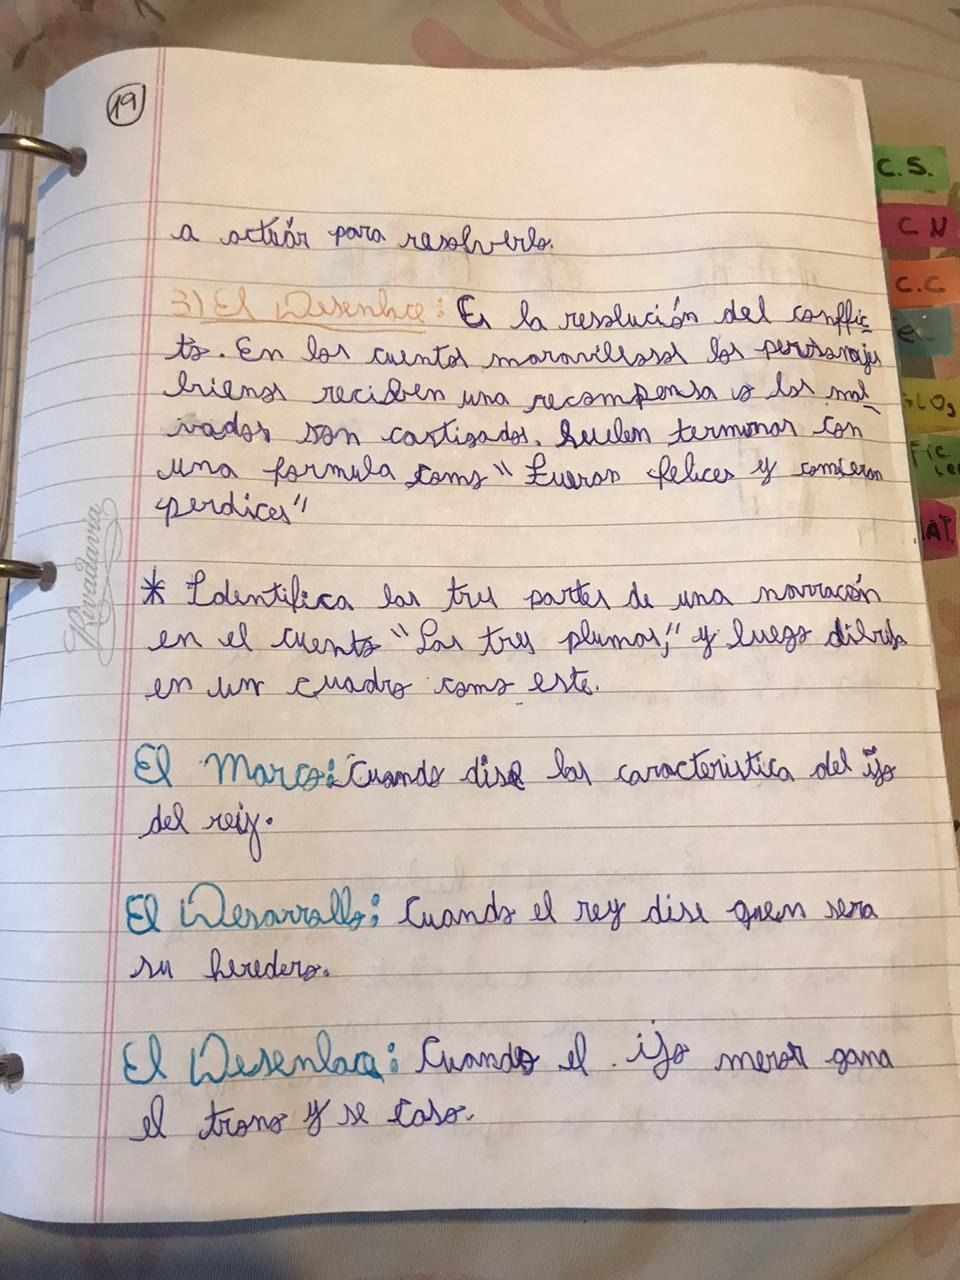 19
a actuár para resolverlo.
3) El Desenlace: Es la resolución del conflic-
to. En los cuentos maravillosos los personajes
buenos reciben una recompensa y los mal-
vados son castigados. Suelen terminar con
una formula como "Fueron felices y comieron
perdices"
* Identifica las tres partes de una narración
en el cuento "Las tres plumas," y luego dibuja
en un cuadro como este.
El Marco: Cuando dise las caracteristica del ijo
del rey.
El Desarrollo: Cuando el rey dise quen sera
su heredero.
El Desenlace: Cuando el ijo menor gana
el trono y se caso.
Rivadavia
C.S.
C N
C.C